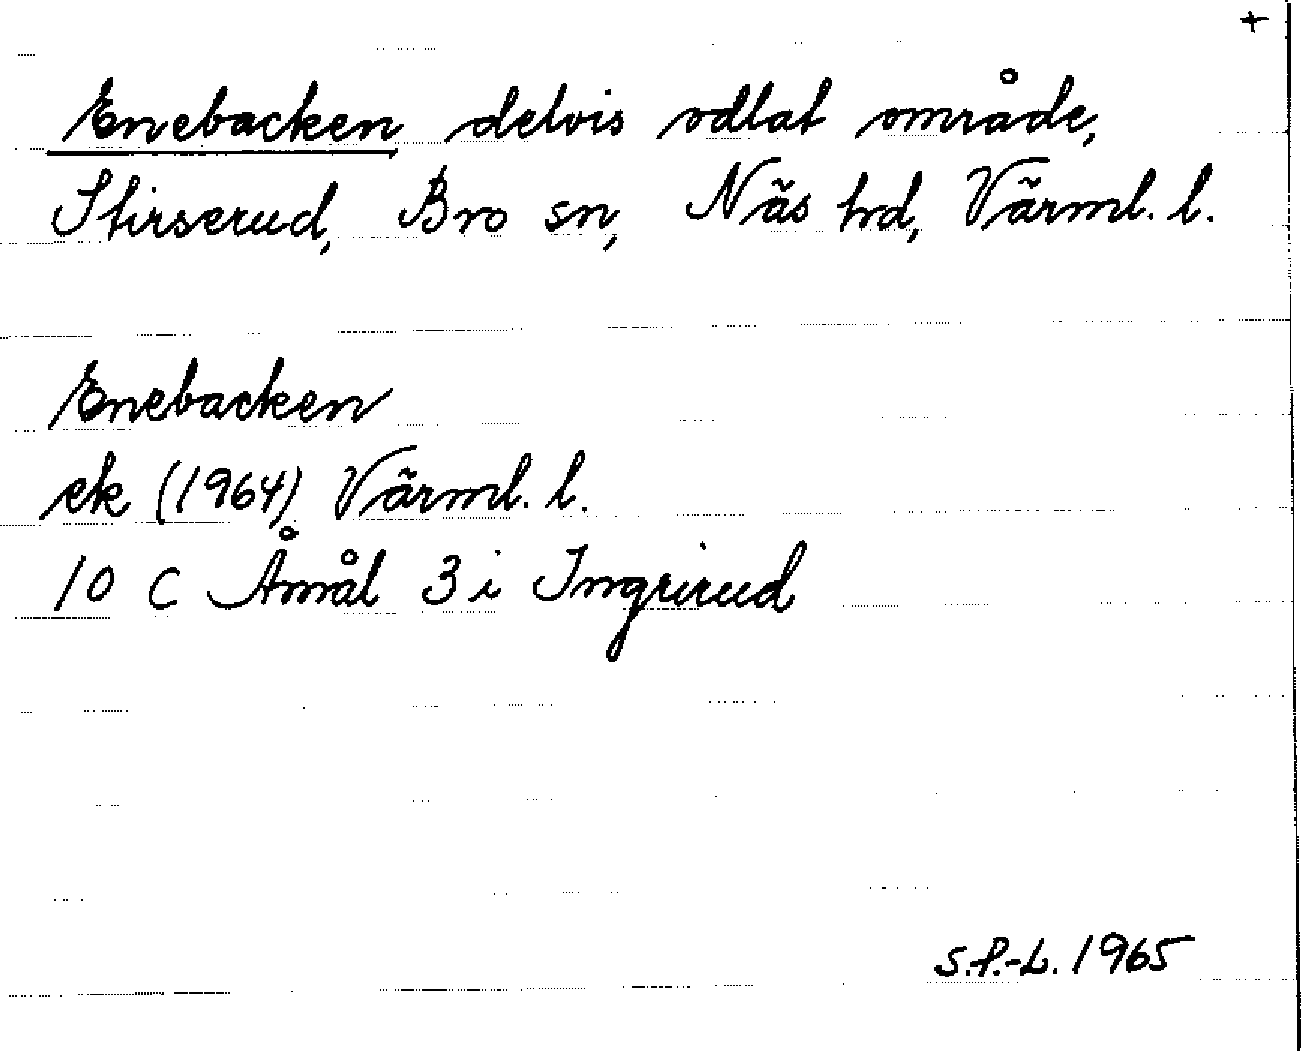 +
Enebacken delvis odlat område,
Stirserud, Bro sn, Näs hd, Värml. l.
Enebacken
ek (1964) Värml. l.
10 C Åmål 3 i Ingrirud
S.P.-L. 1965